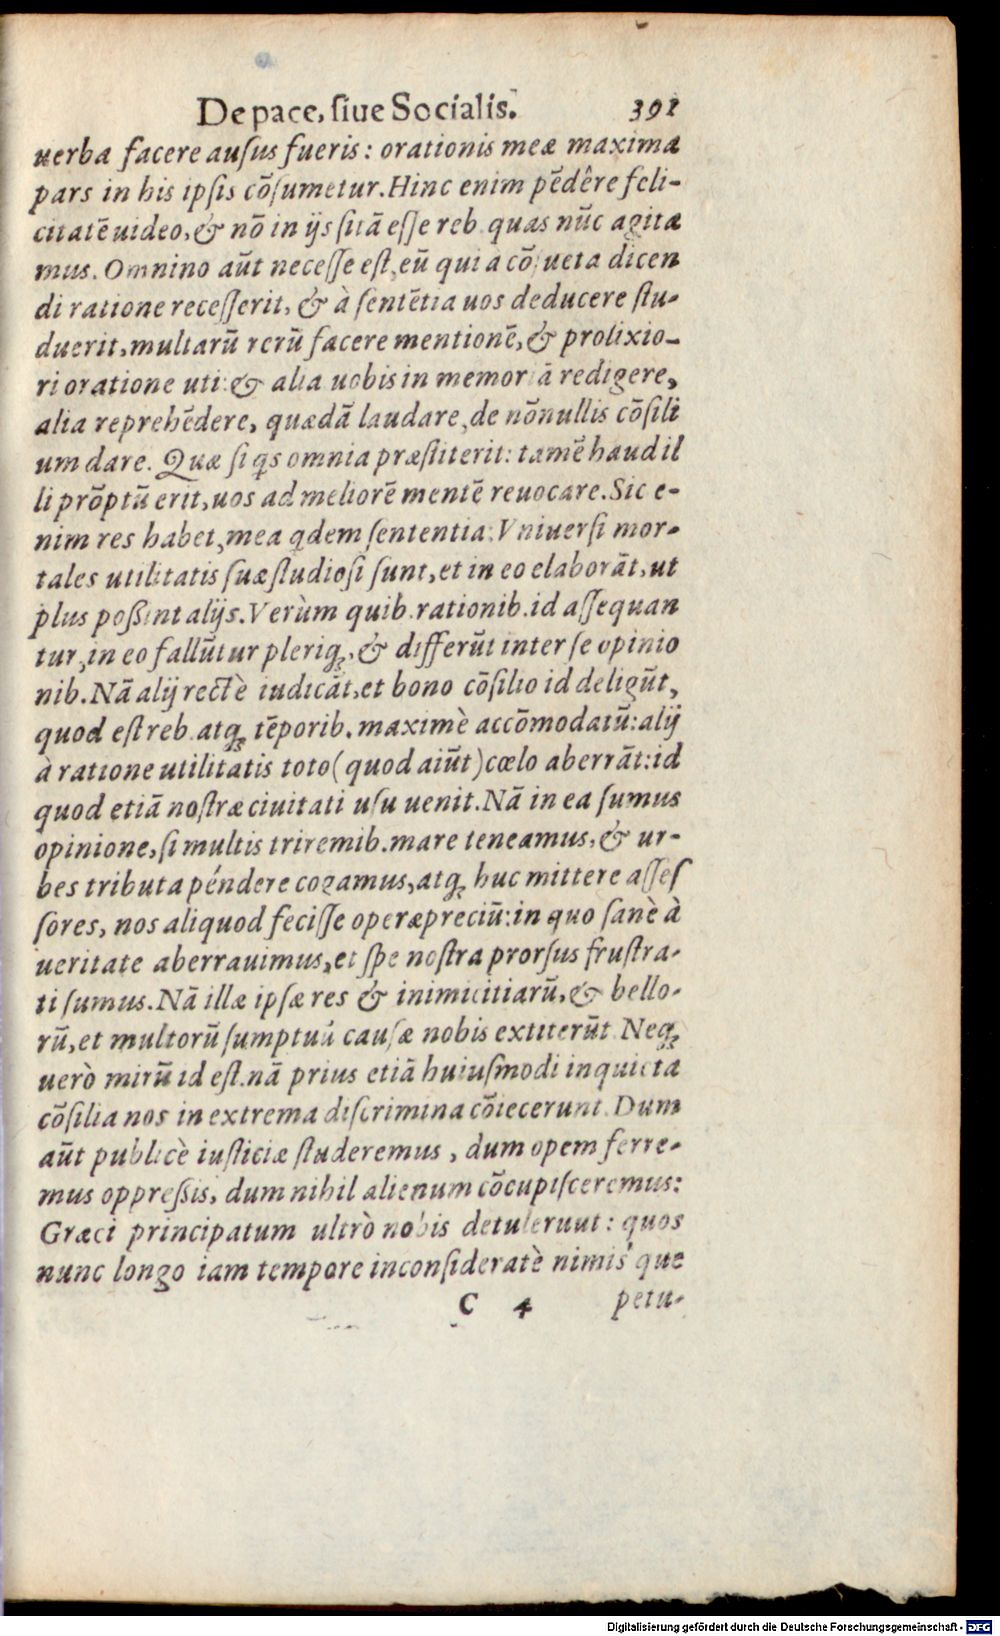 De pace, ſiue Socialis. 391
uerba facere auſus fueris: orationis meæ maxima
pars in his ipſis cōſumetur. Hinc enim pēdêre feli-
citatē uideo, & nō in ijs ſitā eſſe reb. quas nūc agita
mus. Omnino aūt neceſſe eſt, eū qui à cōſueta dicen
di ratione receſſerit, & à ſentētia uos deducere ſtu-
duerit, multarū rerū facere mentionē, & prolixio-
ri oratione uti: & alia uobis in memoriā redigere,
alia reprehēdere, quædā laudare, de nōnullis cōſili
um dare. Quæ ſi qs omnia præſtiterit: tamē haud il
li prōptū erit, uos ad meliorē mentē reuocare. Sic e-
nim res habet, mea qdem ſententia: Vniuerſi mor-
tales utilitatis ſuæ ſtudioſi ſunt, et in eo elaborāt, ut
plus poßint alijs. Verùm quib. rationib. id aſſequan
tur, in eo fallūtur pleriq;, & differūt inter ſe opinio
nib. Nā alij rectè iudicāt, et bono cōſilio id deligūt,
quod est reb. atq; tēporib. maximè accōmodatū: alij
à ratione utilitatis toto (quod aiūt) cœlo aberrāt: id
quod etiā noſtræ ciuitati uſu uenit. Nā in ea ſumus
opinione, ſi multis triremib. mare teneamus, & ur-
bes tributa péndere cogamus, atq; huc mittere aſſeſ
ſores, nos aliquod feciſſe operæpreciū: in quo ſanè à
ueritate aberrauimus, et ſpe noſtra prorſus fruſtra-
ti ſumus. Nā illæ ipſæ res & inimicitiarū, & bello-
rū, et multorū ſumptuū cauſæ nobis extiterūt. Neq;
uerò mirū id eſt. nā prius etiā huiuſmodi inquieta
cōſilia nos in extrema diſcrimina cōiecerunt. Dum
aūt publicè iuſticiæ ſtuderemus, dum opem ferre-
mus oppreſsis, dum nihil alienum cōcupiſceremus:
Græci principatum ultrò nobis detuleruut: quos
nunc longo iam tempore inconſideratè nimis que
C 4 petu-
Digitalisierung gefördert durch die Deutsche Forschungsgemeinschaft - DFG